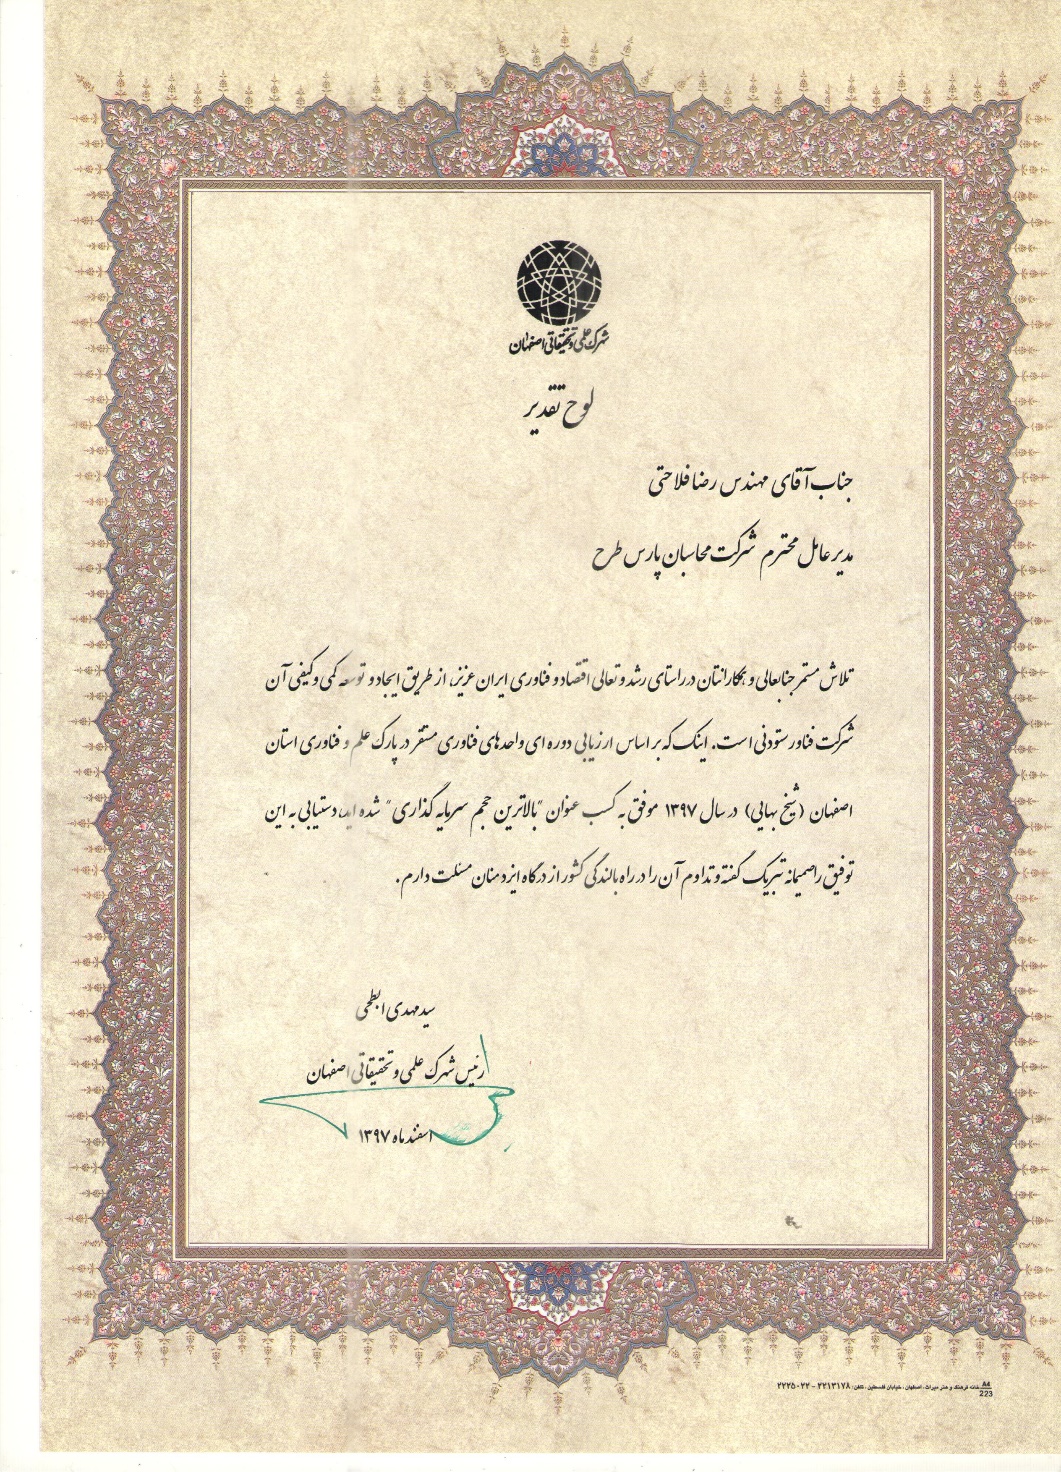 شهرک علمی و تحقیقاتی اصفهان
لوح تقدیر
جناب آقای مهندس رضا فلاحتی
مدیر عامل محترم شرکت محاسبان پارس طرح
تلاش مستمر جنابعالی و همکارانتان در راستای رشد و تعالی اقتصاد و فناوری ایران عزیز، از طریق ایجاد و توسعه کمی و کیفی آن
شرکت فناور ستودنی است. اینک که بر اساس ارزیابی دوره ای واحدهای فناوری مستقر در پارک علم و فناوری استان
اصفهان (شیخ بهایی) در سال ۱۳۹۷ موفق به کسب عنوان "بالاترین حجم سرمایه گذاری" شده اید، دستیابی به این
توفیق را صمیمانه تبریک گفته و تداوم آن را در راه بالندگی کشور از درگاه ایزد منان مسئلت دارم.
سید مهدی ابطحی
رئیس شهرک علمی و تحقیقاتی اصفهان
اسفند ماه ۱۳۹۷
A4
خانه فرهنگ و هنر میراث، اصفهان، خیابان فلسطین، تلفن: ۲۲۱۳۱۷۸ - ۲۲۲۵۰۲۲
223